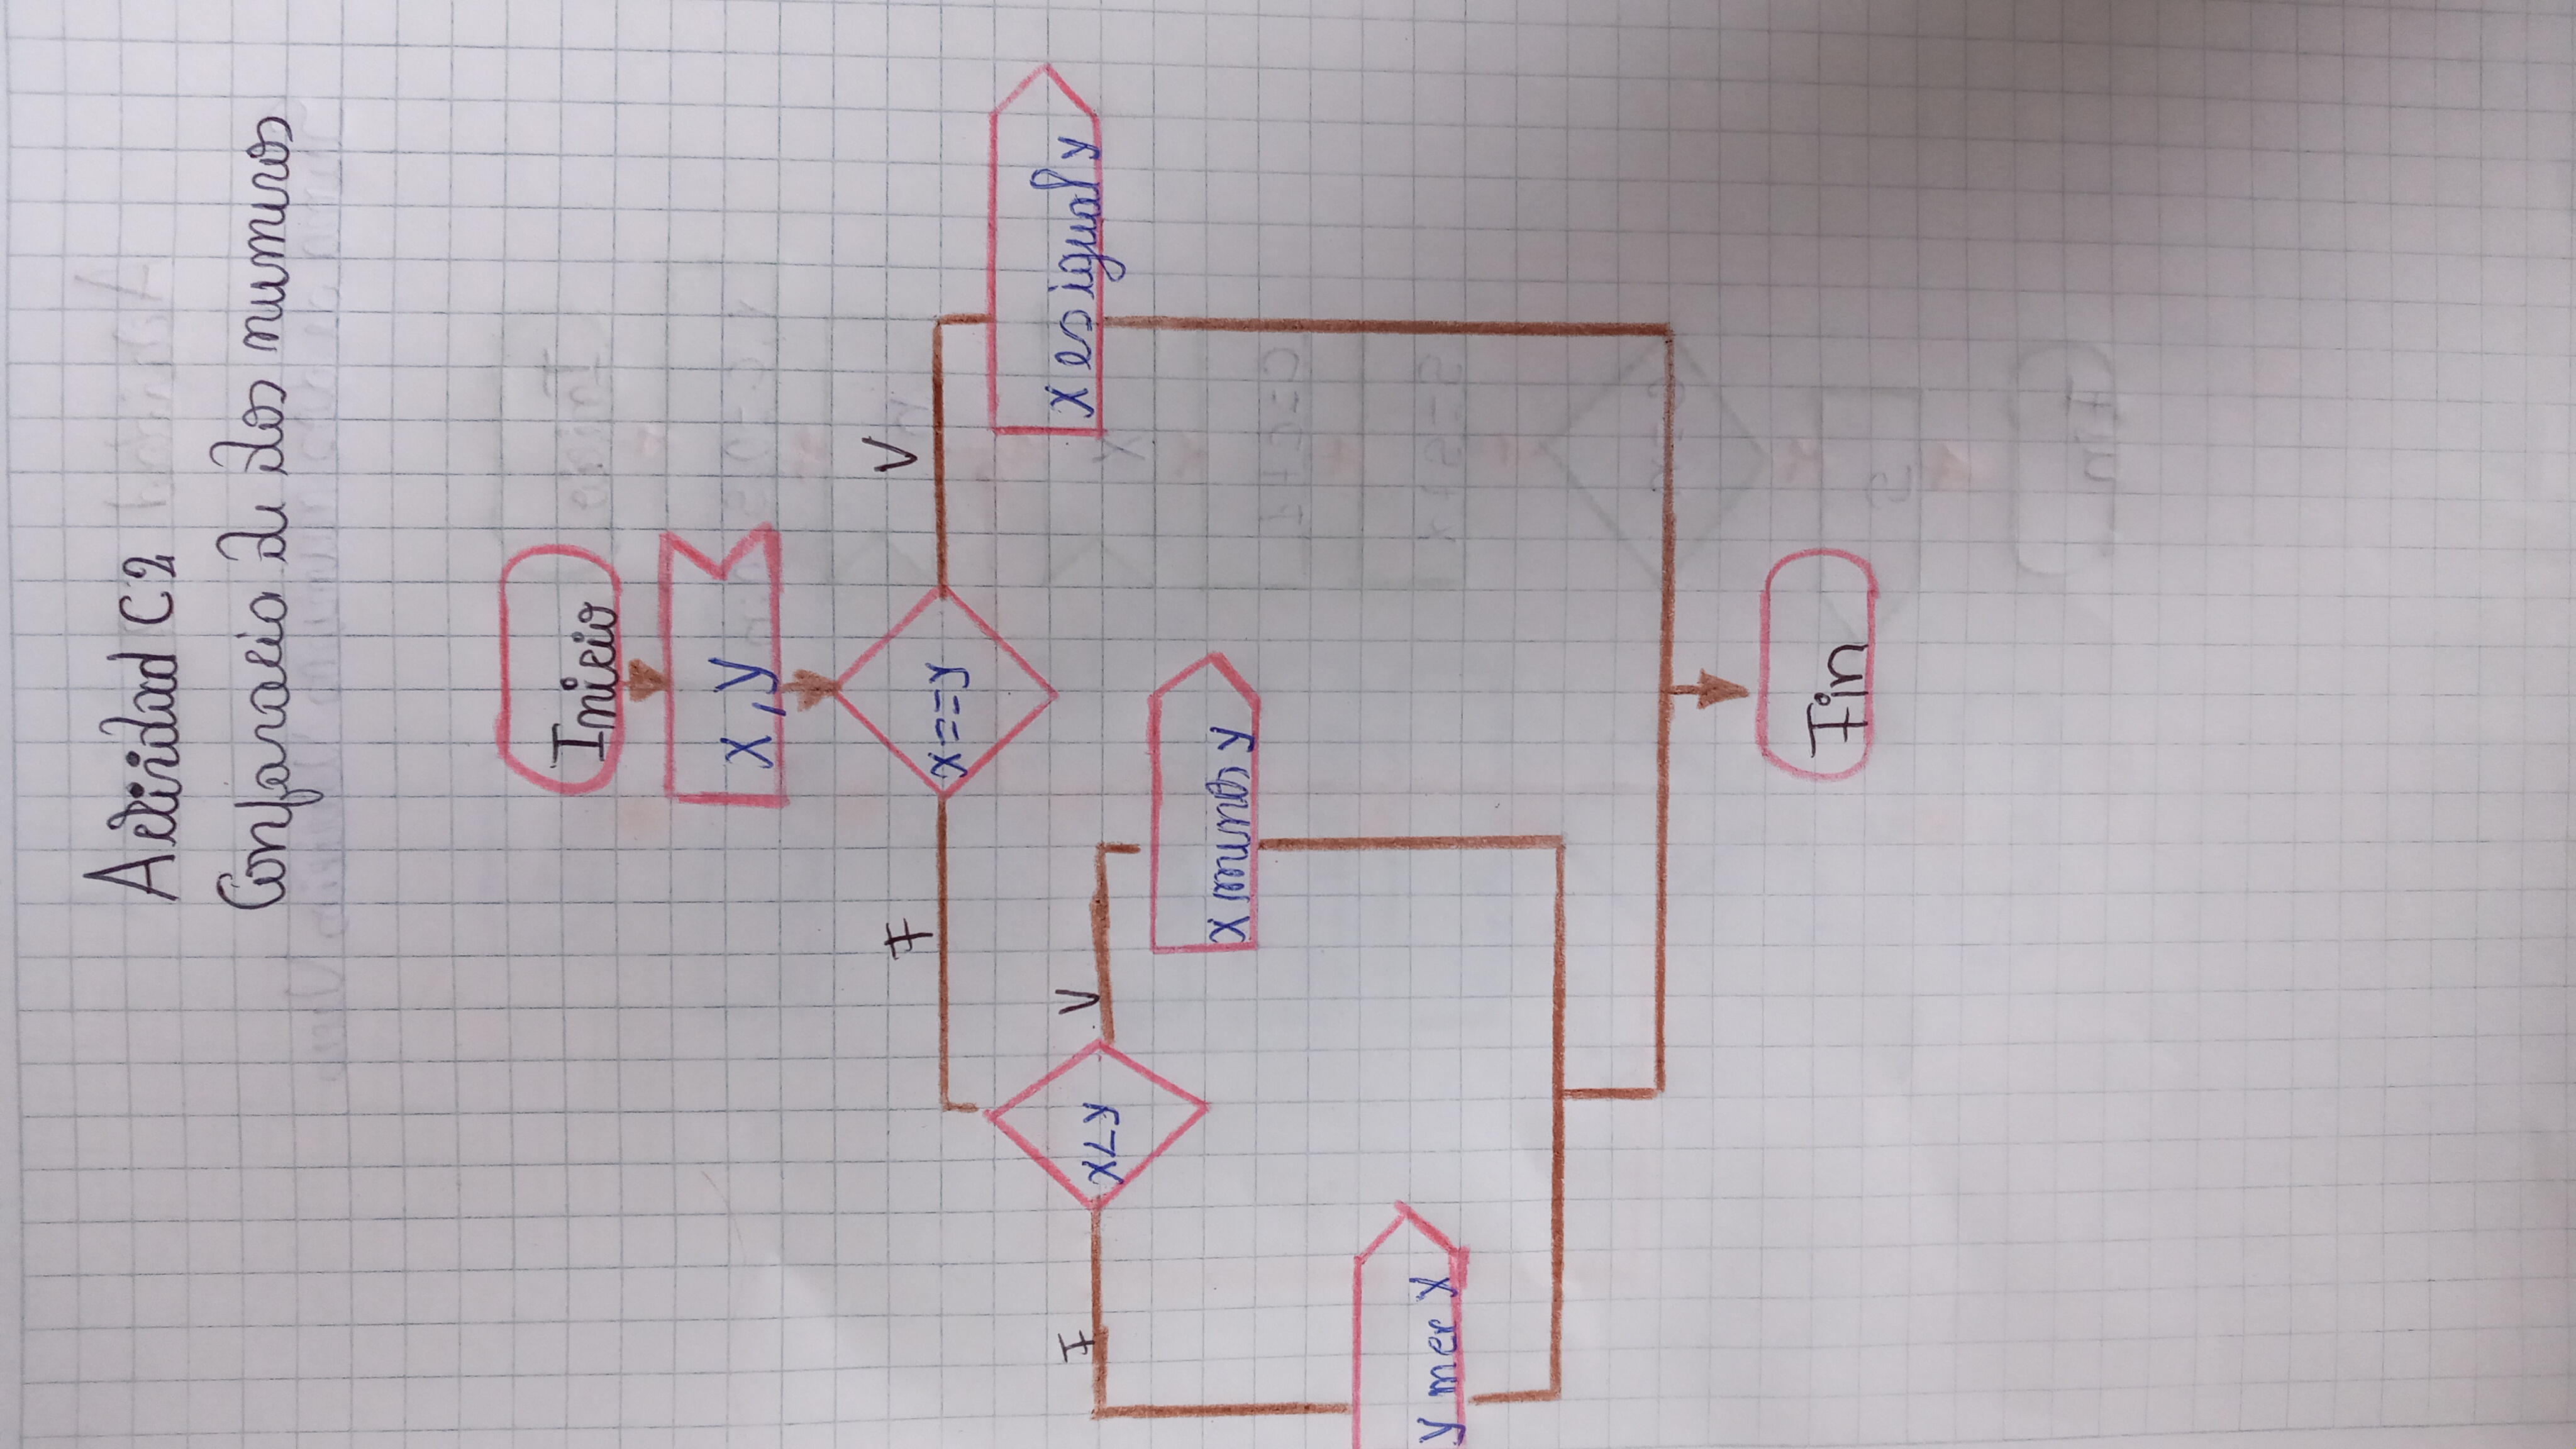 Actividad C2
Conparacio de dos numeros
Inicio
x, y
F
V
x==y
F
x<y
V
x es igual y
x menos y
y mer x
Fin